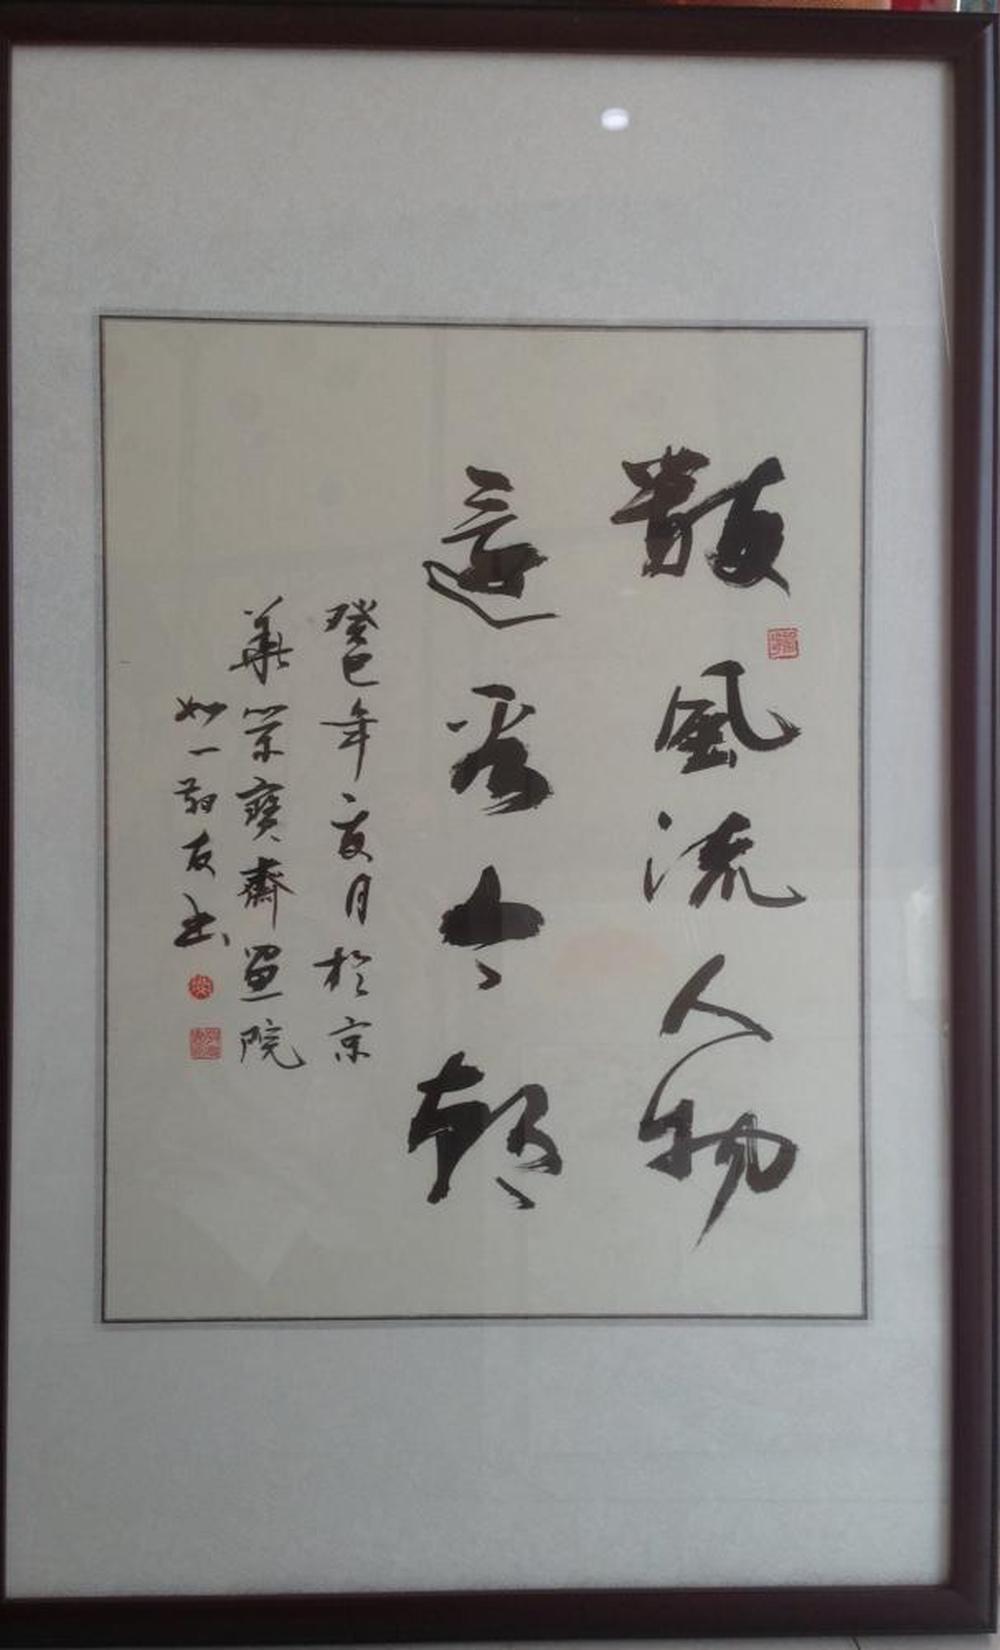 數風流人物
還看今朝
癸巳年夏月於京
華榮寶齋畫院
如一敬友書